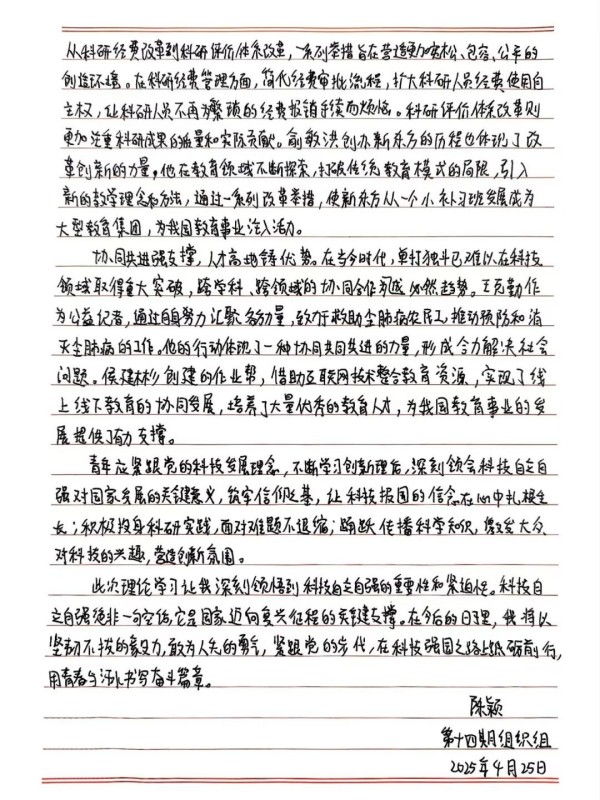 从科研经费改革到科研评价体系改革，一系列举措旨在营造更加宽松、包容、公平的
创造环境。在科研经费管理方面，简化经费审批流程，扩大科研人员经费使用自
主权，让科研人员不再为繁琐的经费报销手续而烦恼。科研评价体系改革则
更加注重科研成果的质量和实际贡献。俞敏洪创办新东方的历程也体现了改
革创新的力量。他在教育领域不断探索，打破传统教育模式的局限，引入
新的教学理念和方法，通过一系列改革举措，使新东方从一个小补习班发展成为
大型教育集团，为我国教育事业注入活力。
协同共进强支撑，人才高地铸优势。在当今时代，单打独斗已难以在科技
领域取得重大突破，跨学科、跨领域的协同合作成必然趋势。王克勤作
为公益记者，通过自身努力汇聚各方力量，致力于救助尘肺病农民工，推动预防和消
灭尘肺病的工作。他的行动体现了一种协同共同共进的力量，形成合力解决社会
问题。侯建彬创建的作业帮，借助互联网技术整合教育资源，实现了线
上线下教育的协同发展，培养了大量优秀的教育人才，为我国教育事业的发
展提供了有力支撑。
青年应紧跟党的科技发展理念，不断学习创新理论，深刻领会科技自立自
强对国家发展的关键意义，筑牢信仰之基，让科技报国的信念在心中扎根生
长；积极投身科研实践，面对难题不退缩；踊跃传播科学知识，激发大众
对科技的兴趣，营造创新氛围。
此次理论学习让我深刻领悟到科技自立自强的重要性和紧迫性。科技自
立自强绝非一句空话，它是国家迈向复兴征程的关键支撑。在今后的日子里，我将以
坚韧不拔的毅力，敢为人先的勇气，紧跟党的步伐，在科技强国之路上砥砺前行，
用青春与活力书写奋斗篇章。
陈颖
第十四期组织组
2025年4月25日